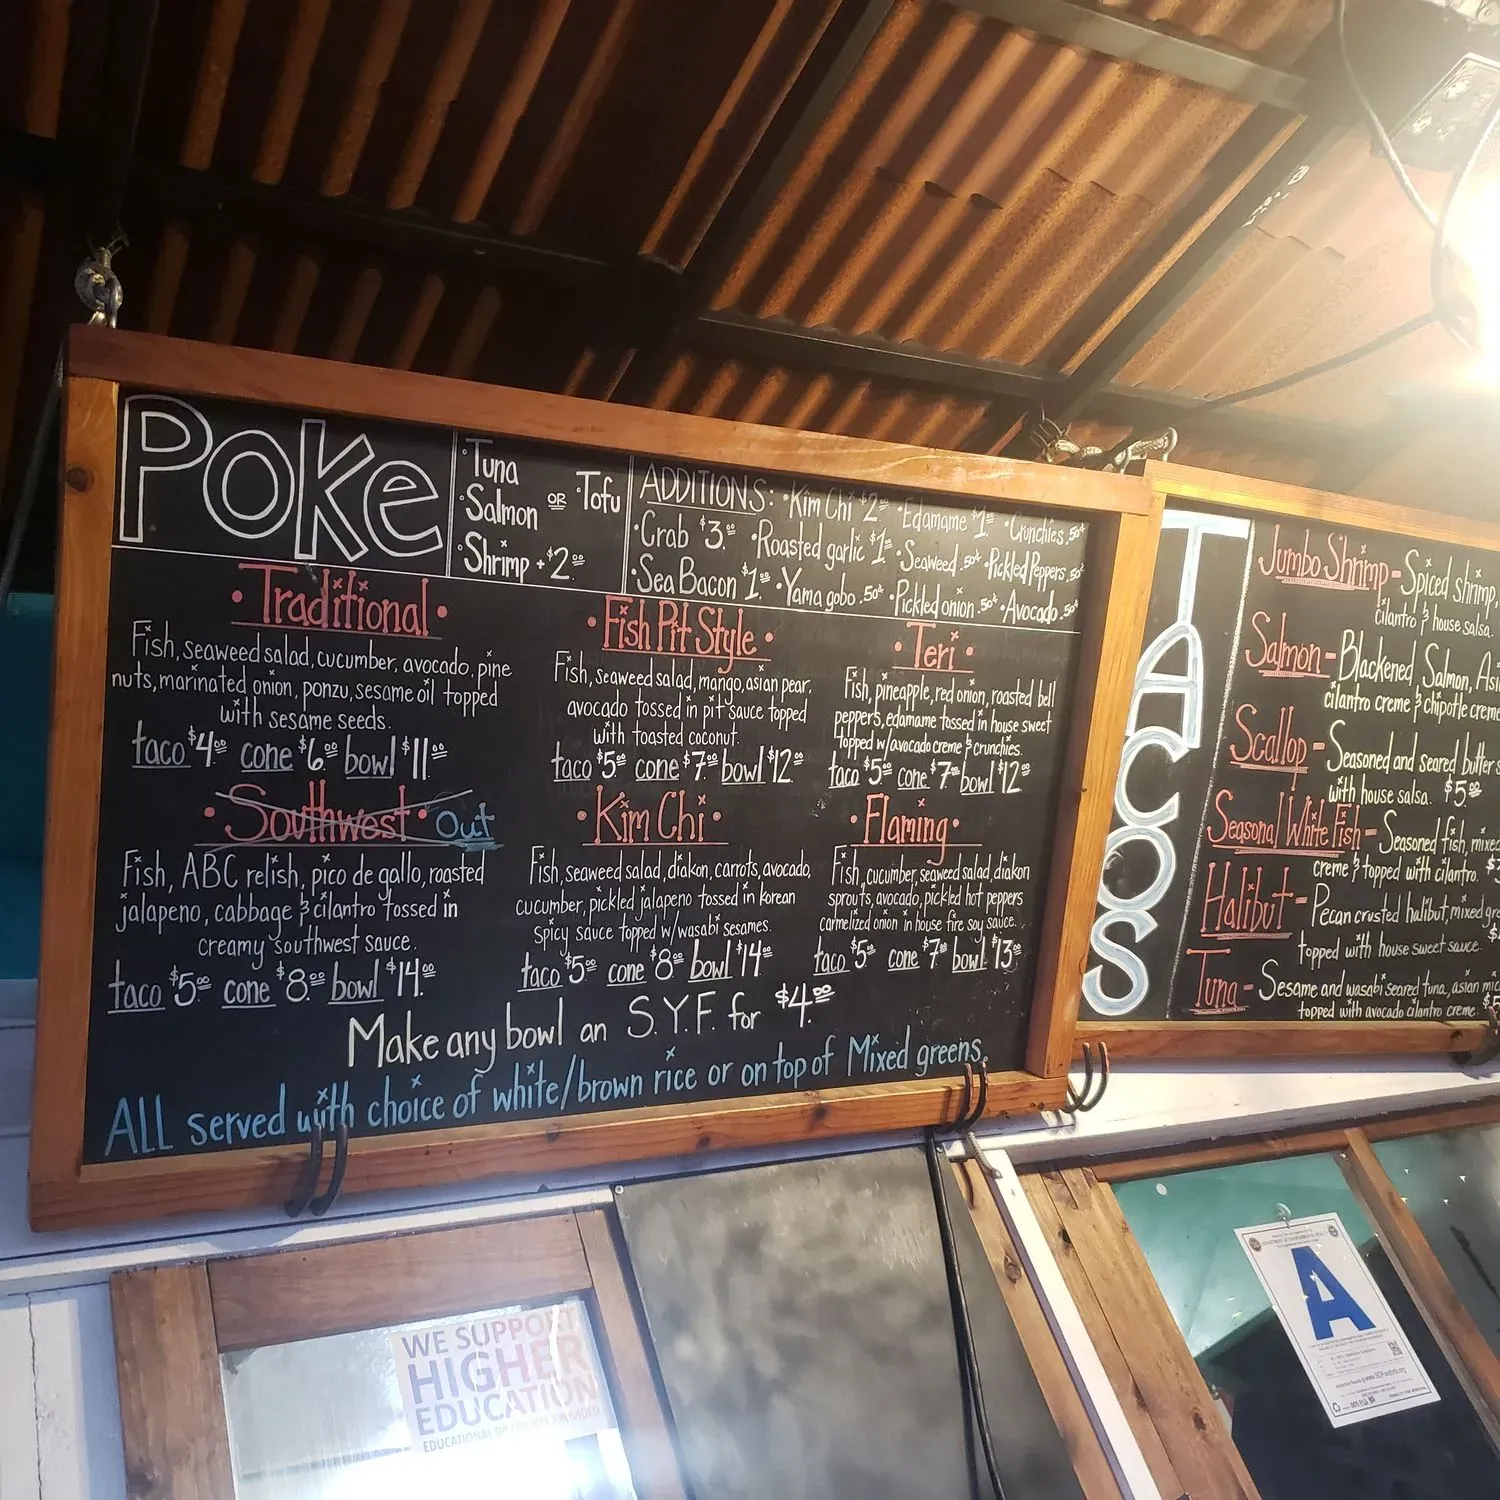 POKe
·Tuna
·Salmon
·Shrimp +$2.00
OR
·Tofu
ADDITIONS: ·Kim Chi $2.00 ·Edamame $1.00 ·Crunchies .50¢
·Crab $3.00 ·Roasted garlic $1.00 ·Seaweed .50¢ ·Pickled Peppers .50¢
·Sea Bacon $1.00 ·Yama gobo .50¢ ·Pickled onion .50¢ ·Avocado .50¢
·Traditional·
Fish, seaweed salad, cucumber, avocado, pine
nuts, marinated onion, ponzu, sesame oil topped
with sesame seeds.
taco $4.00 cone $6.00 bowl $11.00
·Fish Pit Style·
Fish, seaweed salad, mango, asian pear,
avocado tossed in pit sauce topped
with toasted coconut.
taco $5.00 cone $7.00 bowl $12.00
·Teri·
Fish, pineapple, red onion, roasted bell
peppers, edamame tossed in house sweet
topped w/avocado creme & crunchies.
taco $5.00 cone $7.00 bowl $12.00
·Southwest· Out
Fish, ABC relish, pico de gallo, roasted
jalapeno, cabbage & cilantro tossed in
creamy southwest sauce.
taco $5.00 cone $8.00 bowl $14.00
·Kim Chi·
Fish, seaweed salad, diakon, carrots, avocado,
cucumber, pickled jalapeno tossed in korean
spicy sauce topped w/wasabi sesames.
taco $5.00 cone $8.00 bowl $14.00
·Flaming·
Fish, cucumber, seaweed salad, diakon
sprouts, avocado, pickled hot peppers
carmelized onion in house fire soy sauce.
taco $5.00 cone $7.00 bowl $13.00
Make any bowl an S.Y.F. for $4.00
ALL served with choice of white/brown rice or on top of Mixed greens.
TACOS
Jumbo Shrimp- Spiced shrimp,
cilantro & house salsa.
Salmon- Blackened Salmon, Asi
cilantro creme & chipotle creme
Scallop- Seasoned and seared butter
with house salsa. $5.00
Seasonal White Fish- Seasoned fish, mixed
creme & topped with cilantro.
Halibut- Pecan crusted halibut, mixed gr
topped with house sweet sauce.
Tuna- Sesame and wasabi seared tuna, asian mi
topped with avocado cilantro creme.
WE SUPPORT
HIGHER
EDUCATION
A